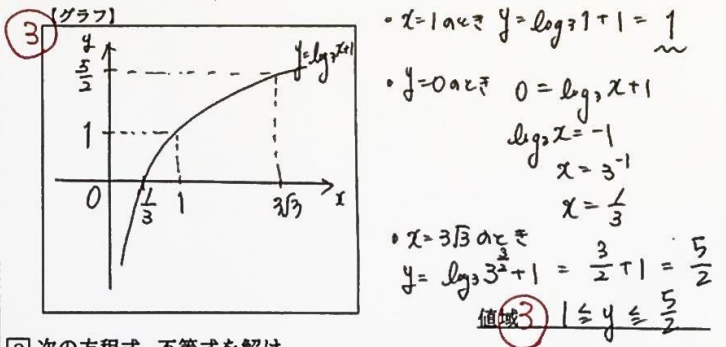 【グラフ】
3
y
y=log₃x+1
5/2
1
0 1/3 1 3√3 x
・x=1のとき y=log₃1+1=1
・y=0のとき 0=log₃x+1
log₃x=-1
x=3⁻¹
x=1/3
・x=3√3のとき
y=log₃3^(3/2)+1=3/2+1=5/2
値域 3 1≦y≦5/2
2 次の方程式、不等式を解け